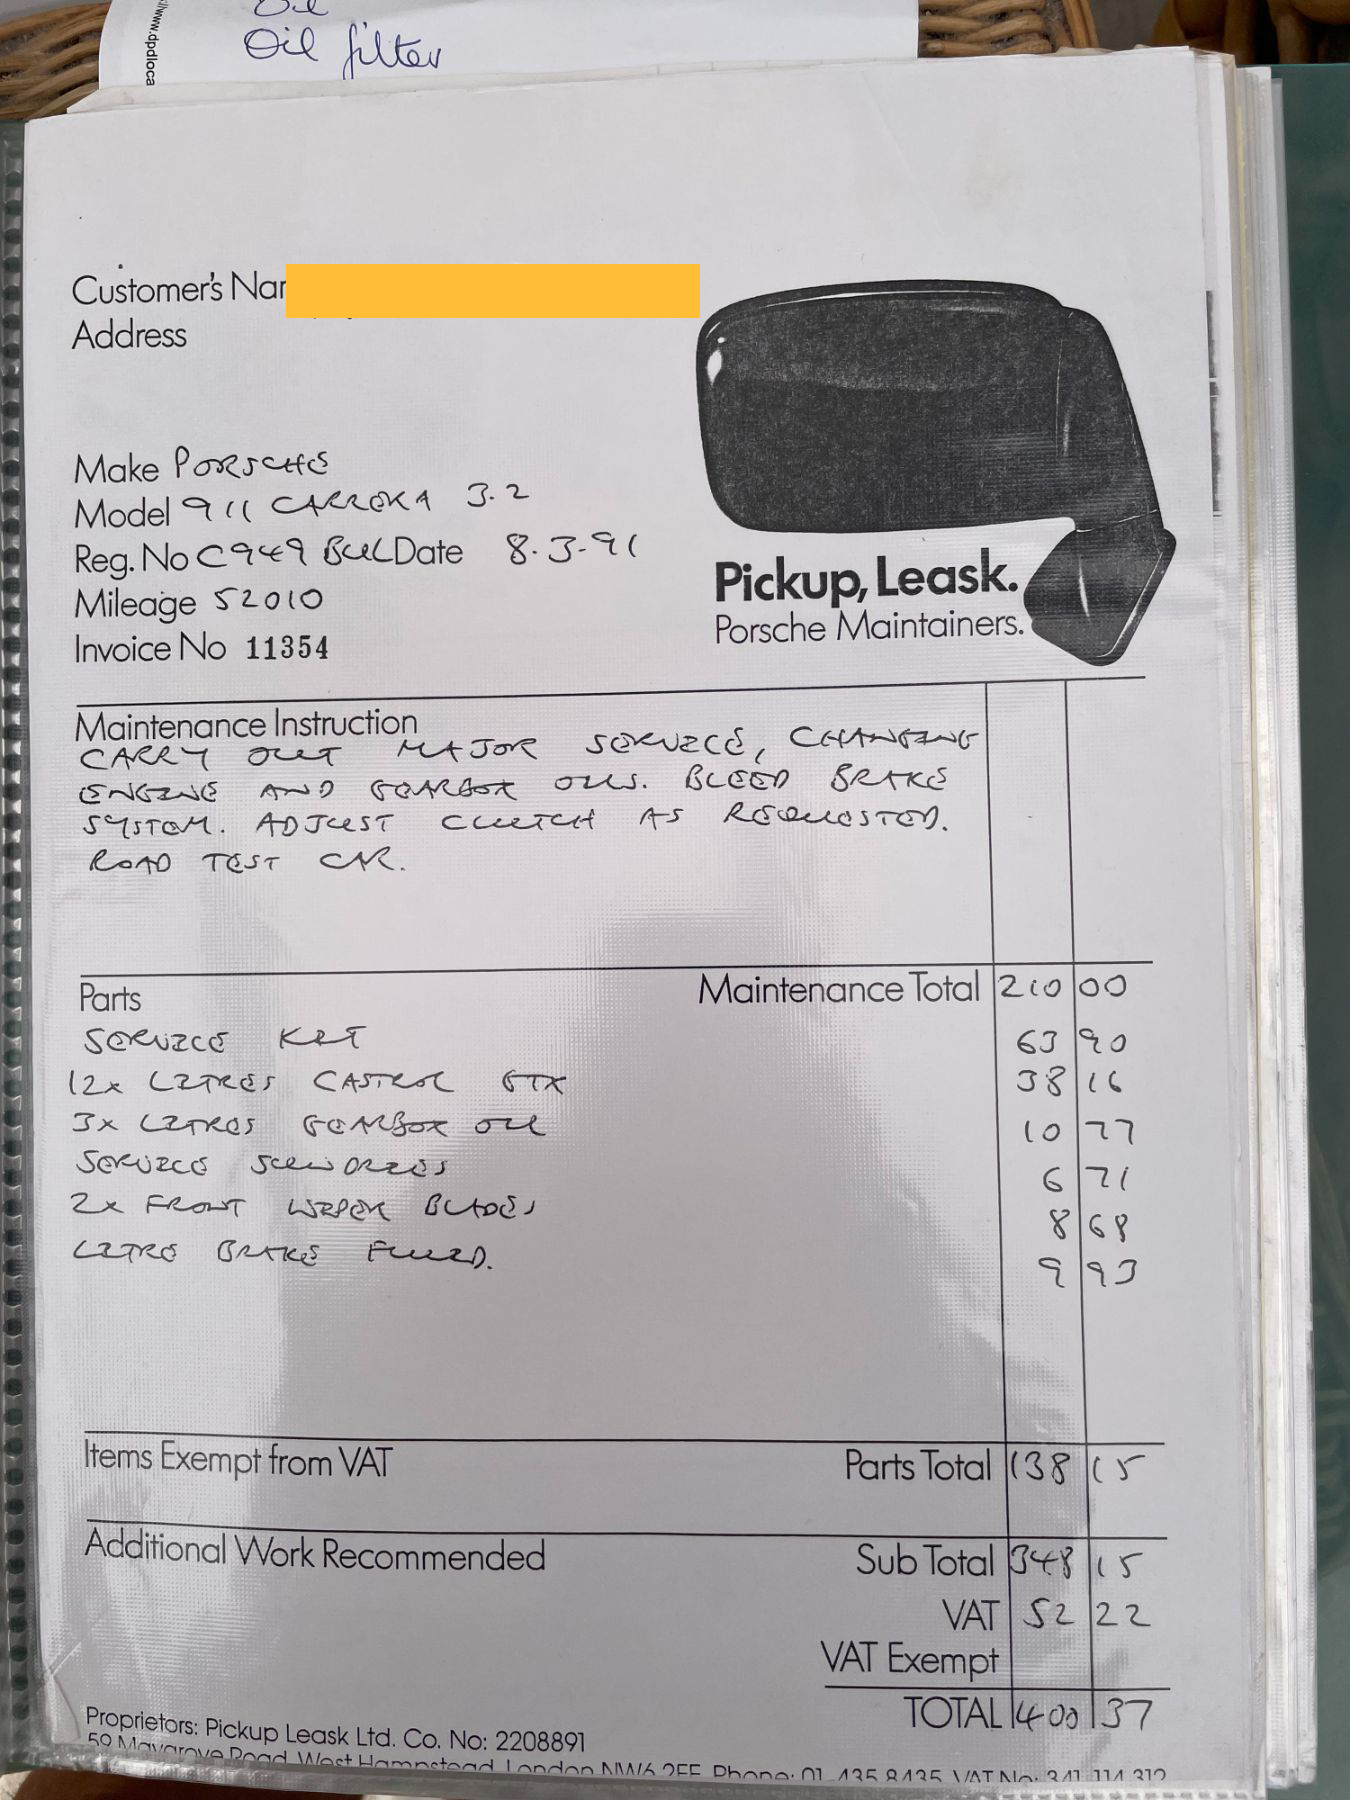 Oil
Oil filter
//www.dpdloca
Customer's Nar
Address
Make PORSCHE
Model 911 CARRERA 3.2
Reg. No C949 BUL Date 8.3.91
Mileage 52010
Invoice No 11354
Pickup, Leask.
Porsche Maintainers.
Maintenance Instruction
CARRY OUT MAJOR SERVICE, CHANGING
ENGINE AND GEARBOX OILS. BLEED BRAKE
SYSTEM. ADJUST CLUTCH AS REQUESTED.
ROAD TEST CAR.
Parts Maintenance Total 210 00
SERVICE KIT 63 90
12x LITRES CASTROL GTX 38 16
3x LITRES GEARBOX OIL 10 77
SERVICE SUNDRIES 6 71
2x FRONT WIPER BLADES 8 68
LITRE BRAKE FLUID. 9 93
Items Exempt from VAT Parts Total 138 15
Additional Work Recommended Sub Total 348 15
VAT 52 22
VAT Exempt
TOTAL 400 37
Proprietors: Pickup Leask Ltd. Co. No: 2208891
59 Maygrove Road, West Hampstead, London NW6 2EE Phone: 01 435 8435 VAT No: 341 114 312